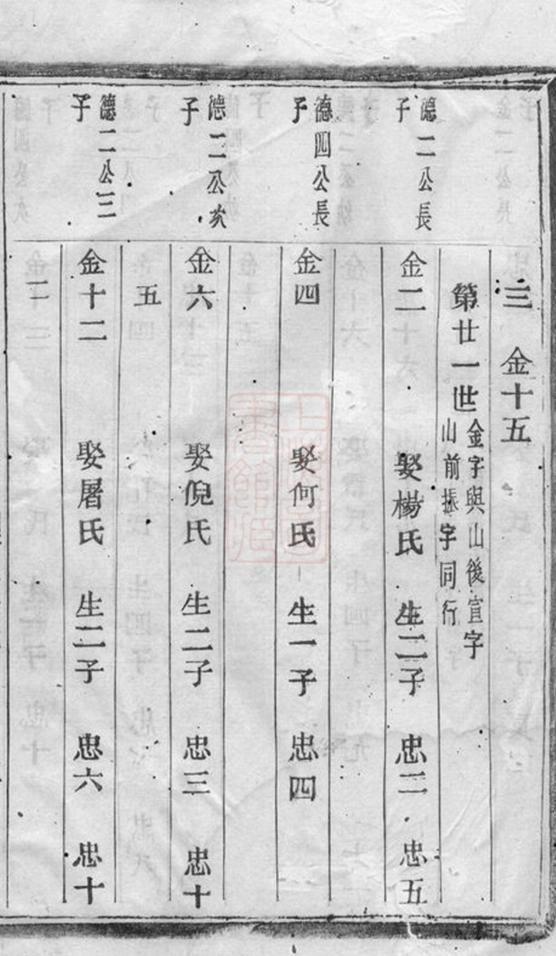 三 金十五
第廿一世
金字與山後宣字
山前振字同行
德二公長
子
金二 娶楊氏 生二子 忠二 忠五
德四公長
子
金四 娶何氏 生一子 忠四
德二公次
子
金六 娶倪氏 生二子 忠三 忠十
五
德二公三
子
金十二 娶屠氏 生二子 忠六 忠十